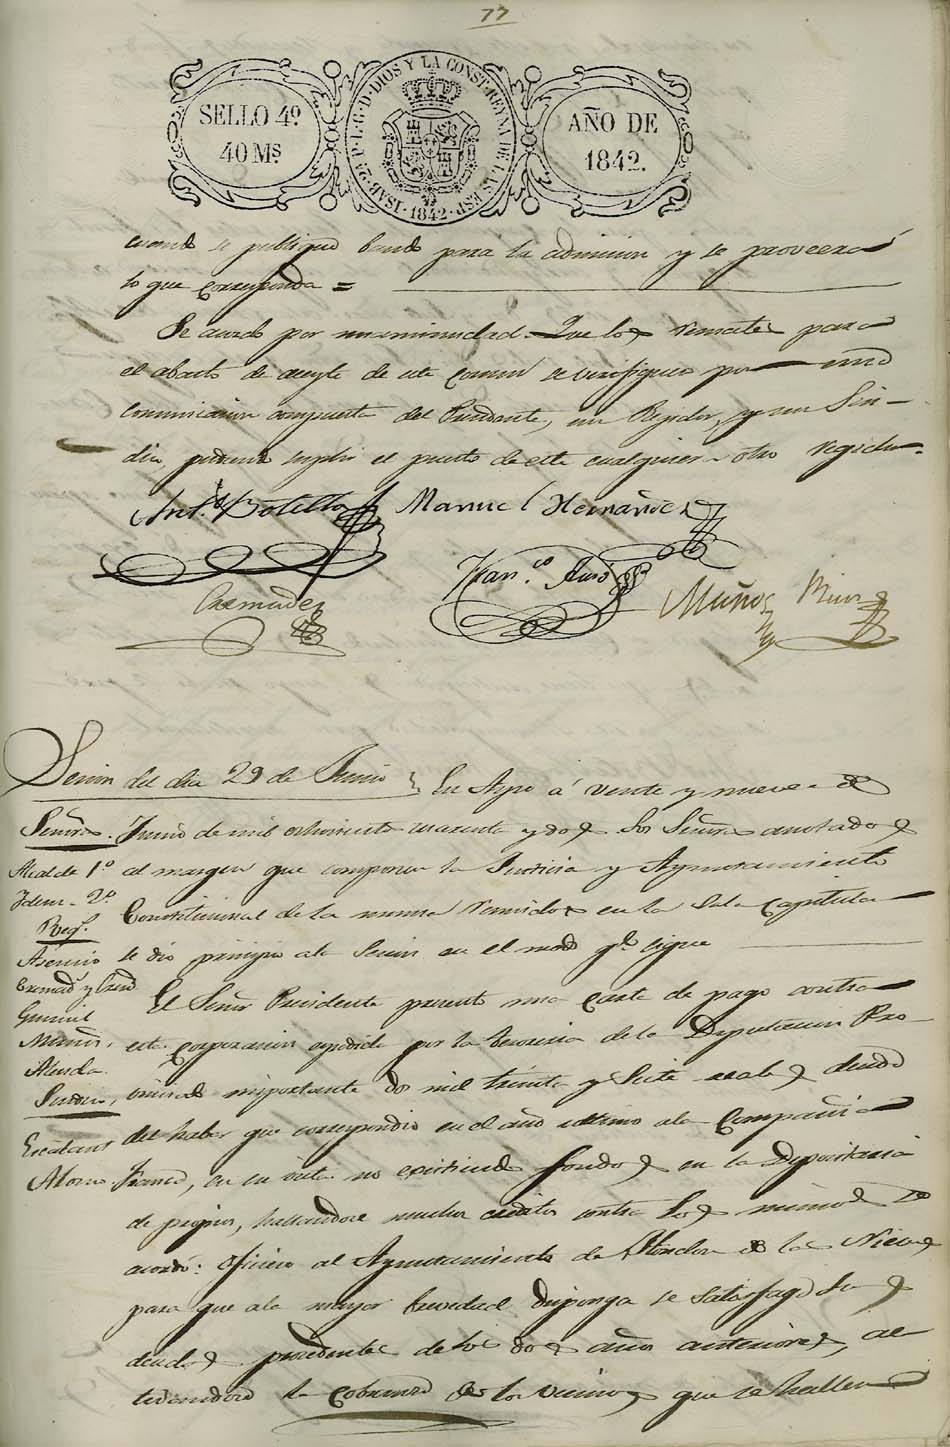 77
SELLO 4º
40 Ms
ISAB. 2ª P. L. G. D. DIOS Y LA CONST. REYNA DE LAS ESP.
1842
AÑO DE
1842.
cuando se publique bando para la admision y se proveerá
lo que corresponda =
Se acordó por unanimidad: Que los remates para
el abasto de aceyte de este comun se verifiquen por una
comunicacion compuesta del Presidente, un Regidor, y un Sin-
dico, pudiendo suplir el puesto de este cualquiera otro regidor.
Antº Botella Manuel Hernández
Franco
Cremades
Muñoz
Sesion del dia 29 de Junio En Aspe á veinte y nueve de
Señores. Junio de mil ochocientos cuarenta y dos Los Señores anotados
Alcalde 1º al margen que componen la Justicia y Ayuntamiento
Idem. 2º Constitucional de la misma reunidos en la Sala Capitular
Reg.s
Asencio se dio principio ala Sesion en el modo qe sigue
Cremads y
El Señor Presidente presentó una carta de pago contra
esta corporacion espedida por la tesoreria de la Diputacion Pro-
Almodr.
vincial importante dos mil treinta y siete reales deuda
Escolano del haber que correspondio en el año ultimo ala Compañia
Franca, en su vista no existiendo fondos en la Depositaria
de propios, hallandose muchos creditos contra los mismos se
acordó: Oficiese al Ayuntamiento de Hondon de las Nieves
para que ala mayor brevedad disponga se satisfaga sus
deudas procedentes de los dos años anteriores, ac-
tivandose la cobranza de los vecinos que se hallen